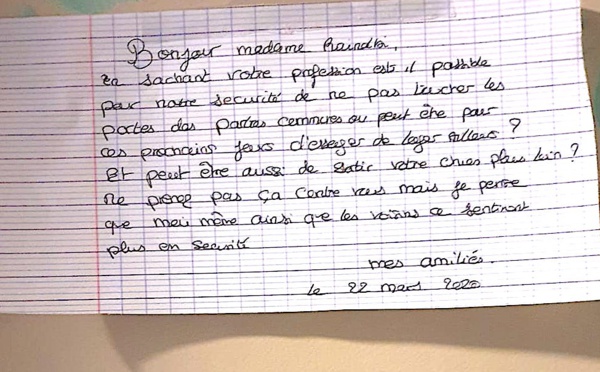 Bonjour madame
en sachant votre profession est il possible
pour notre securité de ne pas toucher les
portes des parties communes ou peut être pour
ces prochains jours d'essayer de loger ailleurs ?
Et peut être aussi de sortir votre chien plus loin ?
Ne prenez pas ça contre vous mais je pense
que moi même ainsi que les voisins se sentiront
plus en securité
mes amitiés.
le 22 mars 2020